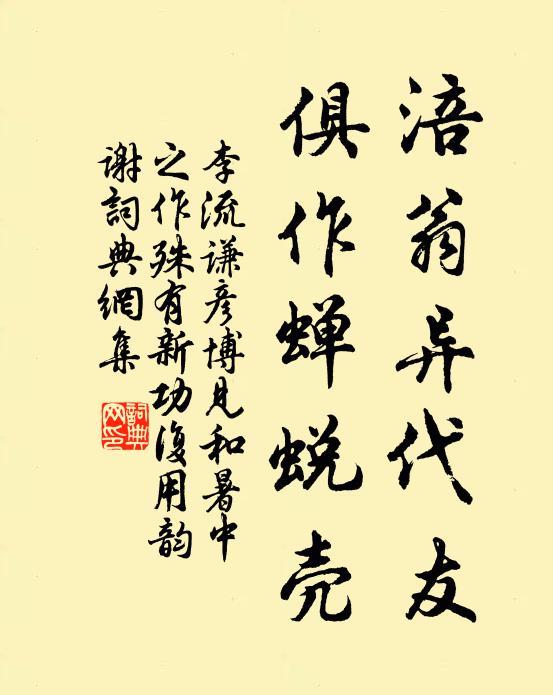 涪翁异代友
俱作蝉蜕壳
李流谦彦博见和暑中
之作殊有新功复用韵
谢词典网集
詞典
网印